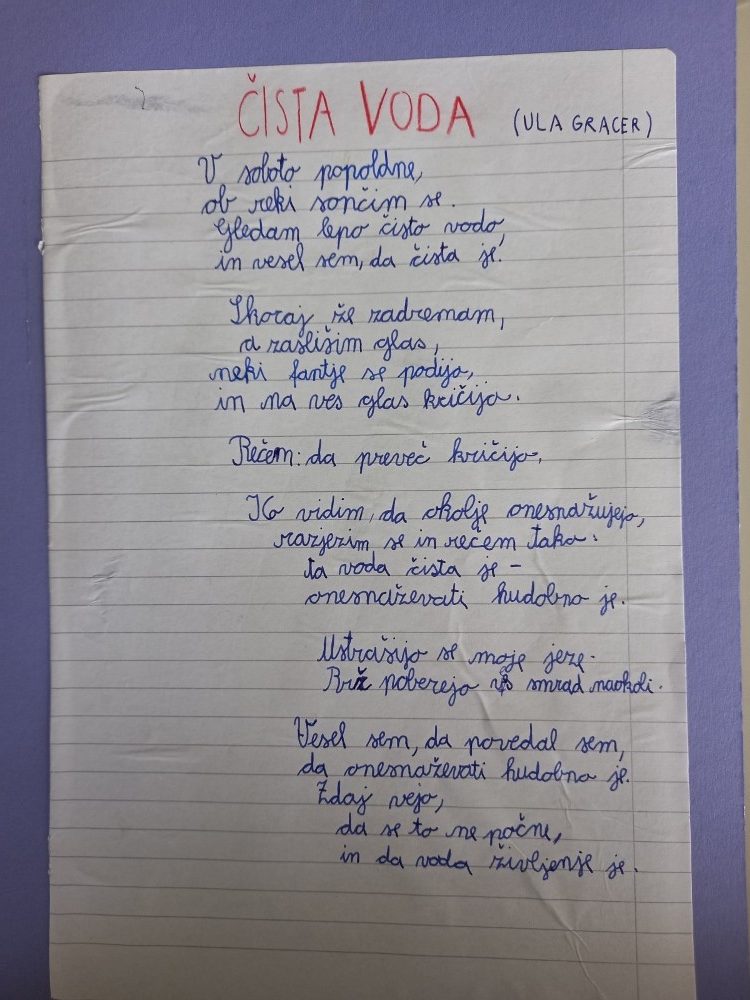 ČISTA VODA (ULA GRACER)
V soboto popoldne,
ob reki sončim se.
Gledam lepo čisto vodo,
in vesel sem, da čista je.
Skoraj že zadremam,
a zaslišim glas,
neki fantje se podijo,
in na ves glas kričijo.
Rečem: da preveč kričijo.
Ko vidim, da okolje onesnažujejo,
razjezim se in rečem tako:
ta voda čista je -
onesnaževati hudobno je.
Ustrašijo se moje jeze.
Brž poberejo smrad naokoli.
Vesel sem, da povedal sem,
da onesnaževati hudobno je.
Zdaj vejo,
da se to ne počne,
in da voda življenje je.